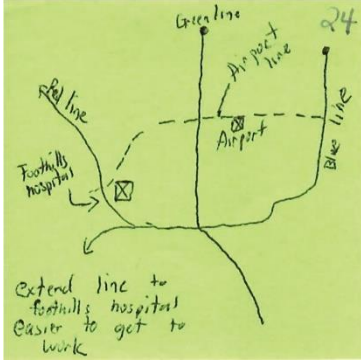 24
Green line
Airport
line
Red line
Airport
Blue line
Foothills
hospital
extend line to
foothills hospital
easier to get to
work